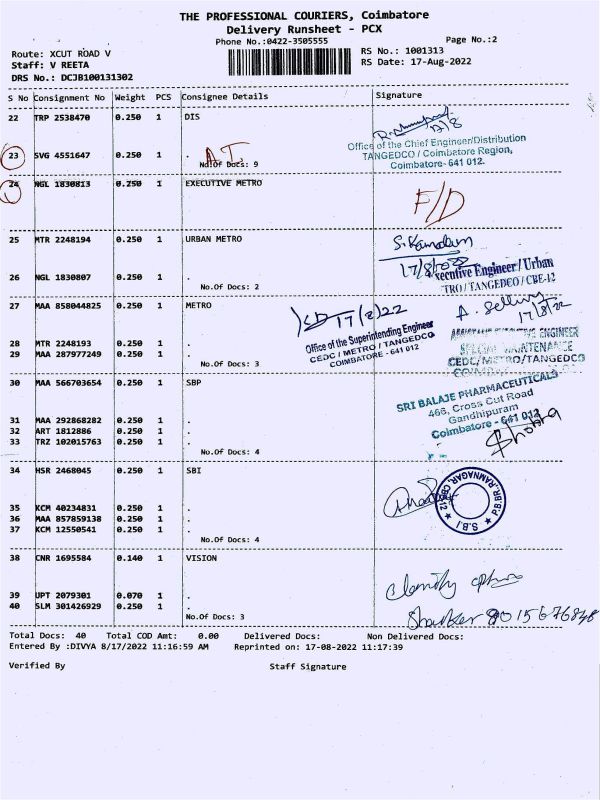 THE PROFESSIONAL COURIERS, Coimbatore
Delivery Runsheet - PCX
Phone No.:0422-3505555
Page No.:2
Route: XCUT ROAD V
RS No.: 1001313
Staff: V REETA
RS Date: 17-Aug-2022
DRS No.: DCJB100131302
S No Consignment No Weight PCS Consignee Details Signature
22 TRP 2538470 0.250 1 DIS
17/8
Office of the Chief Engineer/Distribution
TANGEDCO / Coimbatore Region,
Coimbatore- 641 012.
23 SVG 4551647 0.250 1 .
A.T.
No.Of Docs: 9
24 NGL 1830813 0.250 1 EXECUTIVE METRO
F/D
25 MTR 2248194 0.250 1 URBAN METRO
17/8/2022
Executive Engineer / Urban
TRO / TANGEDCO / CBE-12
26 NGL 1830807 0.250 1 .
No.Of Docs: 2
27 MAA 858044825 0.250 1 METRO
17/8/22
Office of the Superintending Engineer
CEDC / METRO / TANGEDCO
COIMBATORE - 641 012
17/8/22
ASSISTANT EXECUTIVE ENGINEER
SPECIAL MAINTENANCE
CEDC/METRO/TANGEDCO
28 MTR 2248193 0.250 1 .
29 MAA 287977249 0.250 1 .
No.Of Docs: 3
30 MAA 566703654 0.250 1 SBP
SRI BALAJE PHARMACEUTICALS
466, Cross Cut Road
Gandhipuram
Coimbatore - 641 012
31 MAA 292868282 0.250 1 .
32 ART 1812886 0.250 1 .
33 TRZ 102015763 0.250 1 .
No.Of Docs: 4
34 HSR 2468045 0.250 1 SBI
P.B.BR.,RAMNAGAR, CBE-12 ★ S.B.I ★
35 KCM 40234831 0.250 1 .
36 MAA 857859138 0.250 1 .
37 KCM 12550541 0.250 1 .
No.Of Docs: 4
38 CNR 1695584 0.140 1 VISION
39 UPT 2079301 0.070 1 .
40 SLM 301426929 0.250 1 .
No.Of Docs: 3
Total Docs: 40 Total COD Amt: 0.00 Delivered Docs: Non Delivered Docs:
Entered By :DIVYA 8/17/2022 11:16:59 AM Reprinted on: 17-08-2022 11:17:39
Verified By Staff Signature